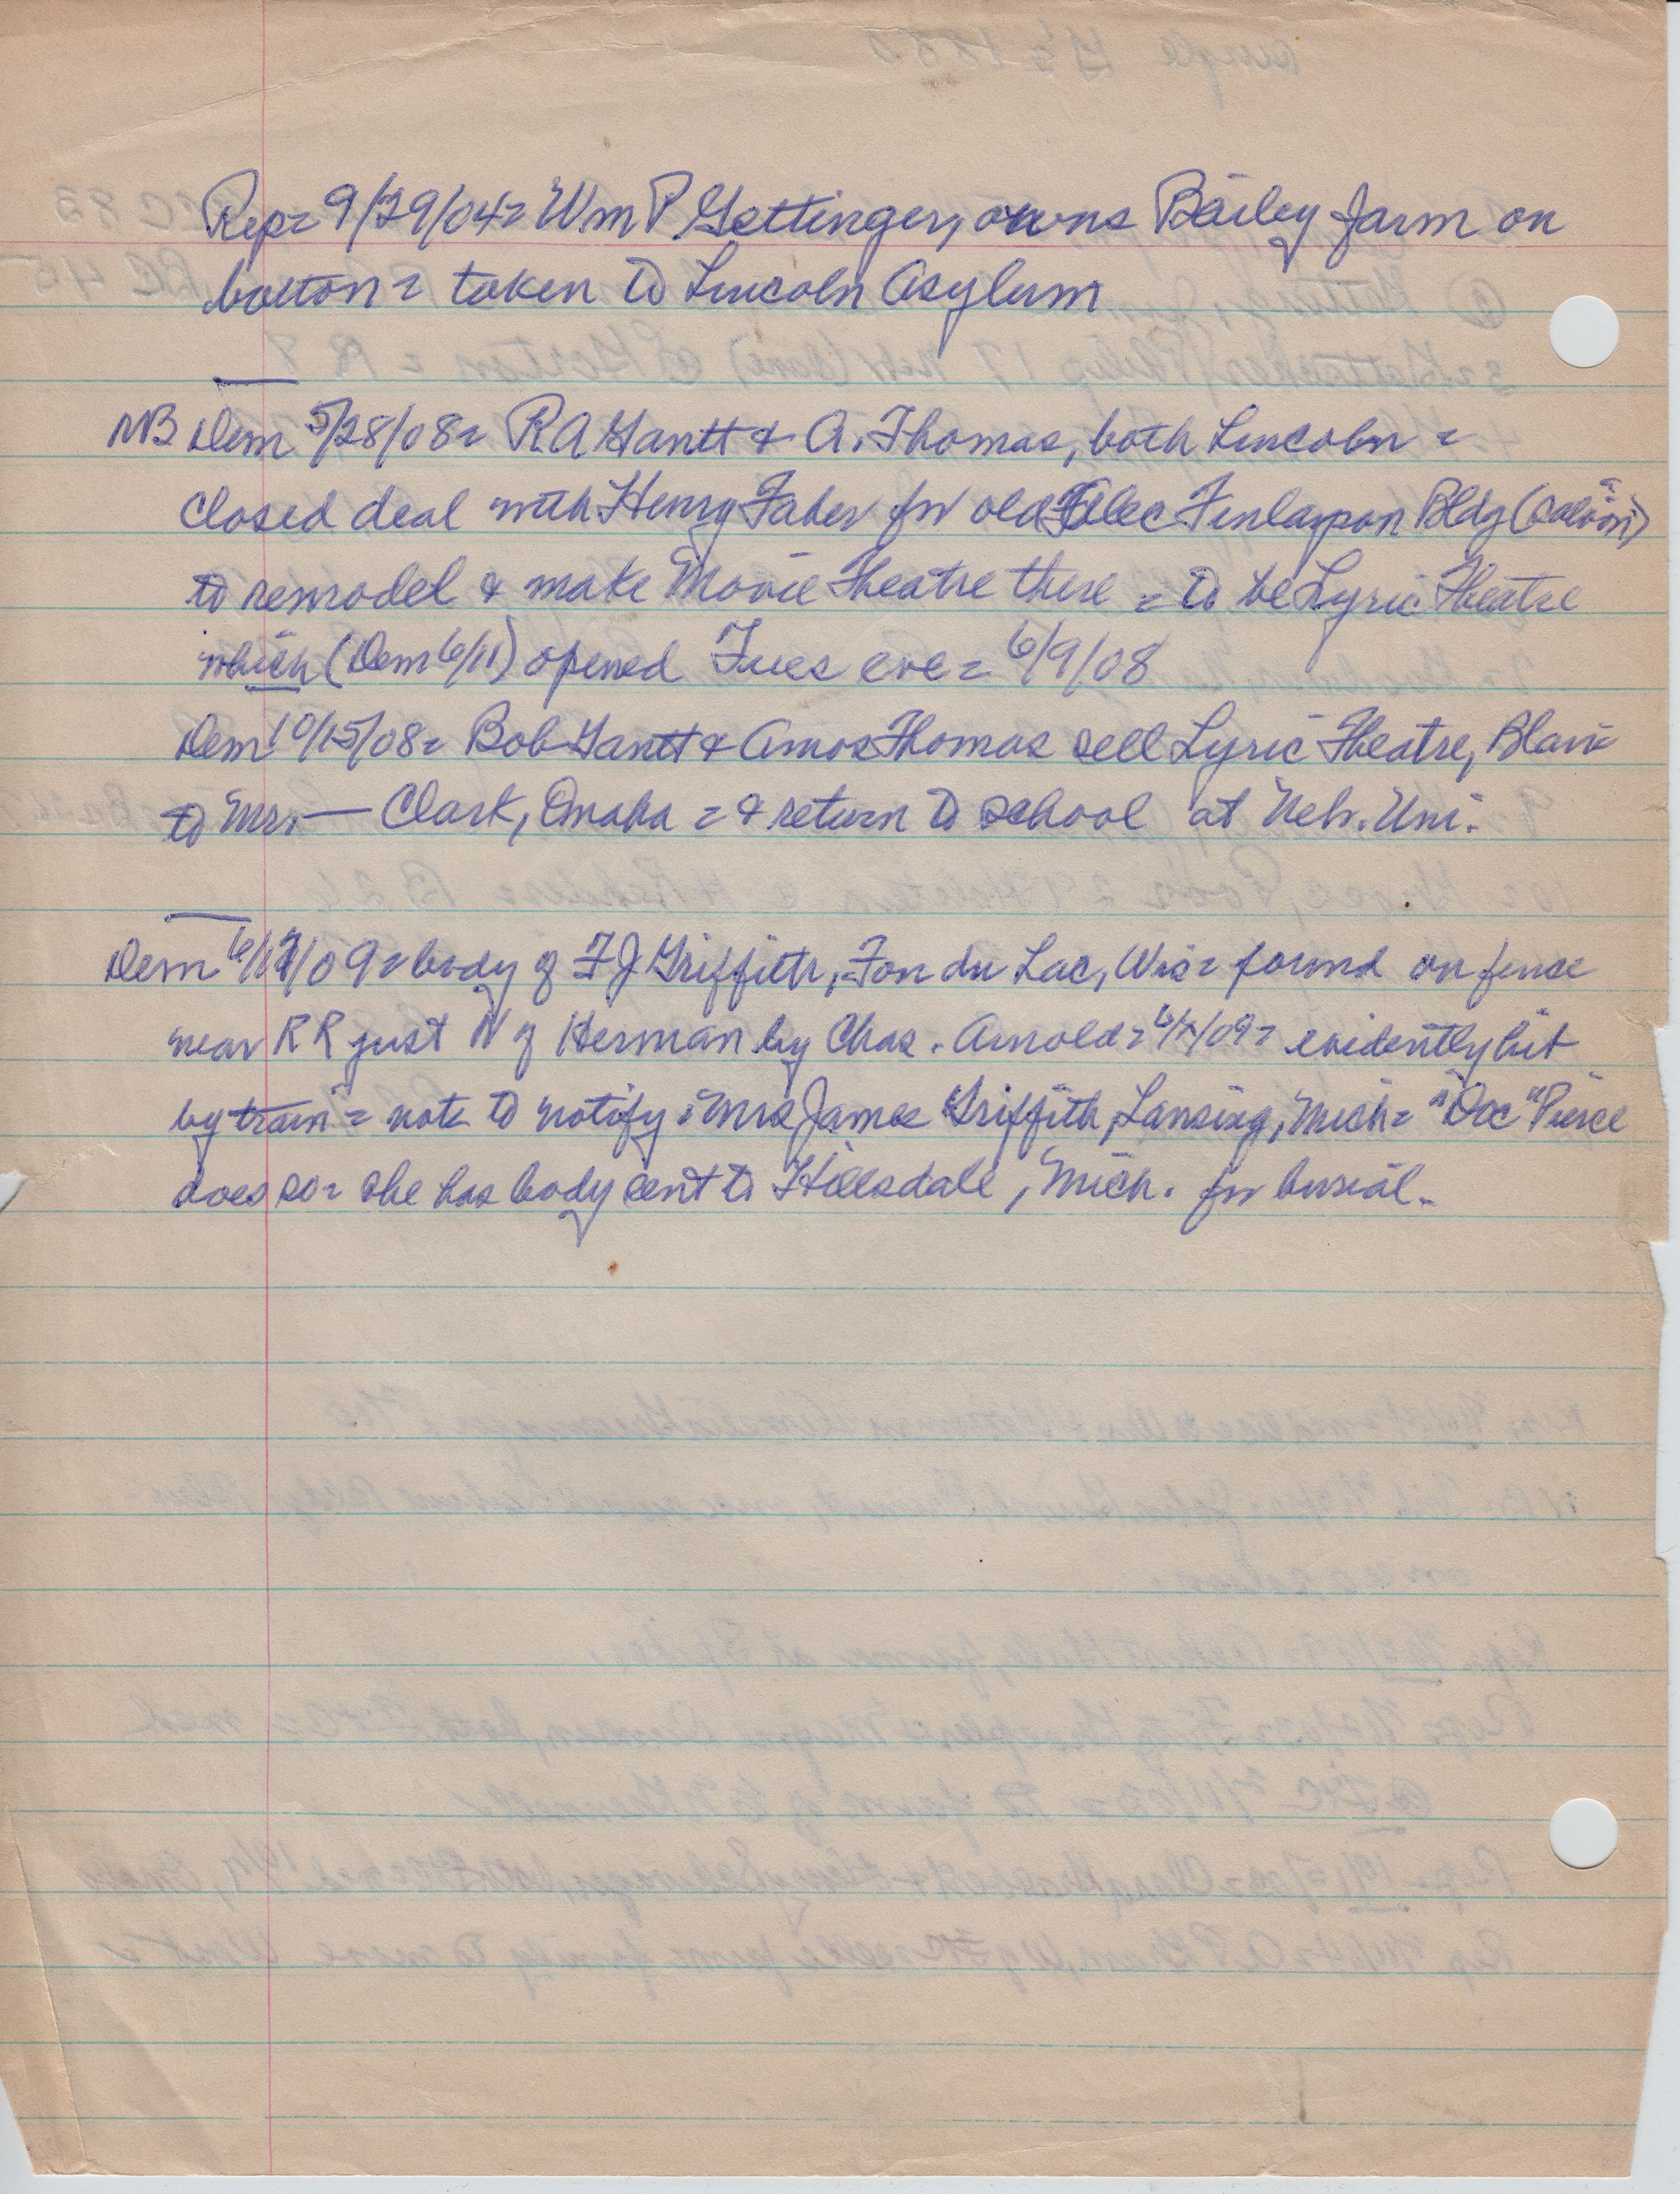 Rep= 9/29/04= Wm P. Gettinger, owns Bailey farm on
bottom= taken to Lincoln Asylum
NB Dem 5/28/08= R.A Gantt & A. Thomas, both Lincoln =
closed deal with Henry Faber for old Alec Finlayson Bldg (saloon)
to remodel & make Movie Theatre there = to be Lyric Theatre
which (Dem 6/11) opened Tues eve= 6/9/08
Dem 10/15/08= Bob Gantt & Amos Thomas sell Lyric Theatre, Blair
to Mr. — Clark, Omaha = & return to school at Neb. Uni.
Dem 6/ /09= body of F J Griffith, Fon du Lac, Wis= found on fence
near RR just N of Herman by Chas. Arnold= /09= evidently hit
by train= note to notify: Mrs James Griffith, Lansing, Mich= "Doc" Pierce
does so= she has body sent to Hillsdale, Mich. for burial.